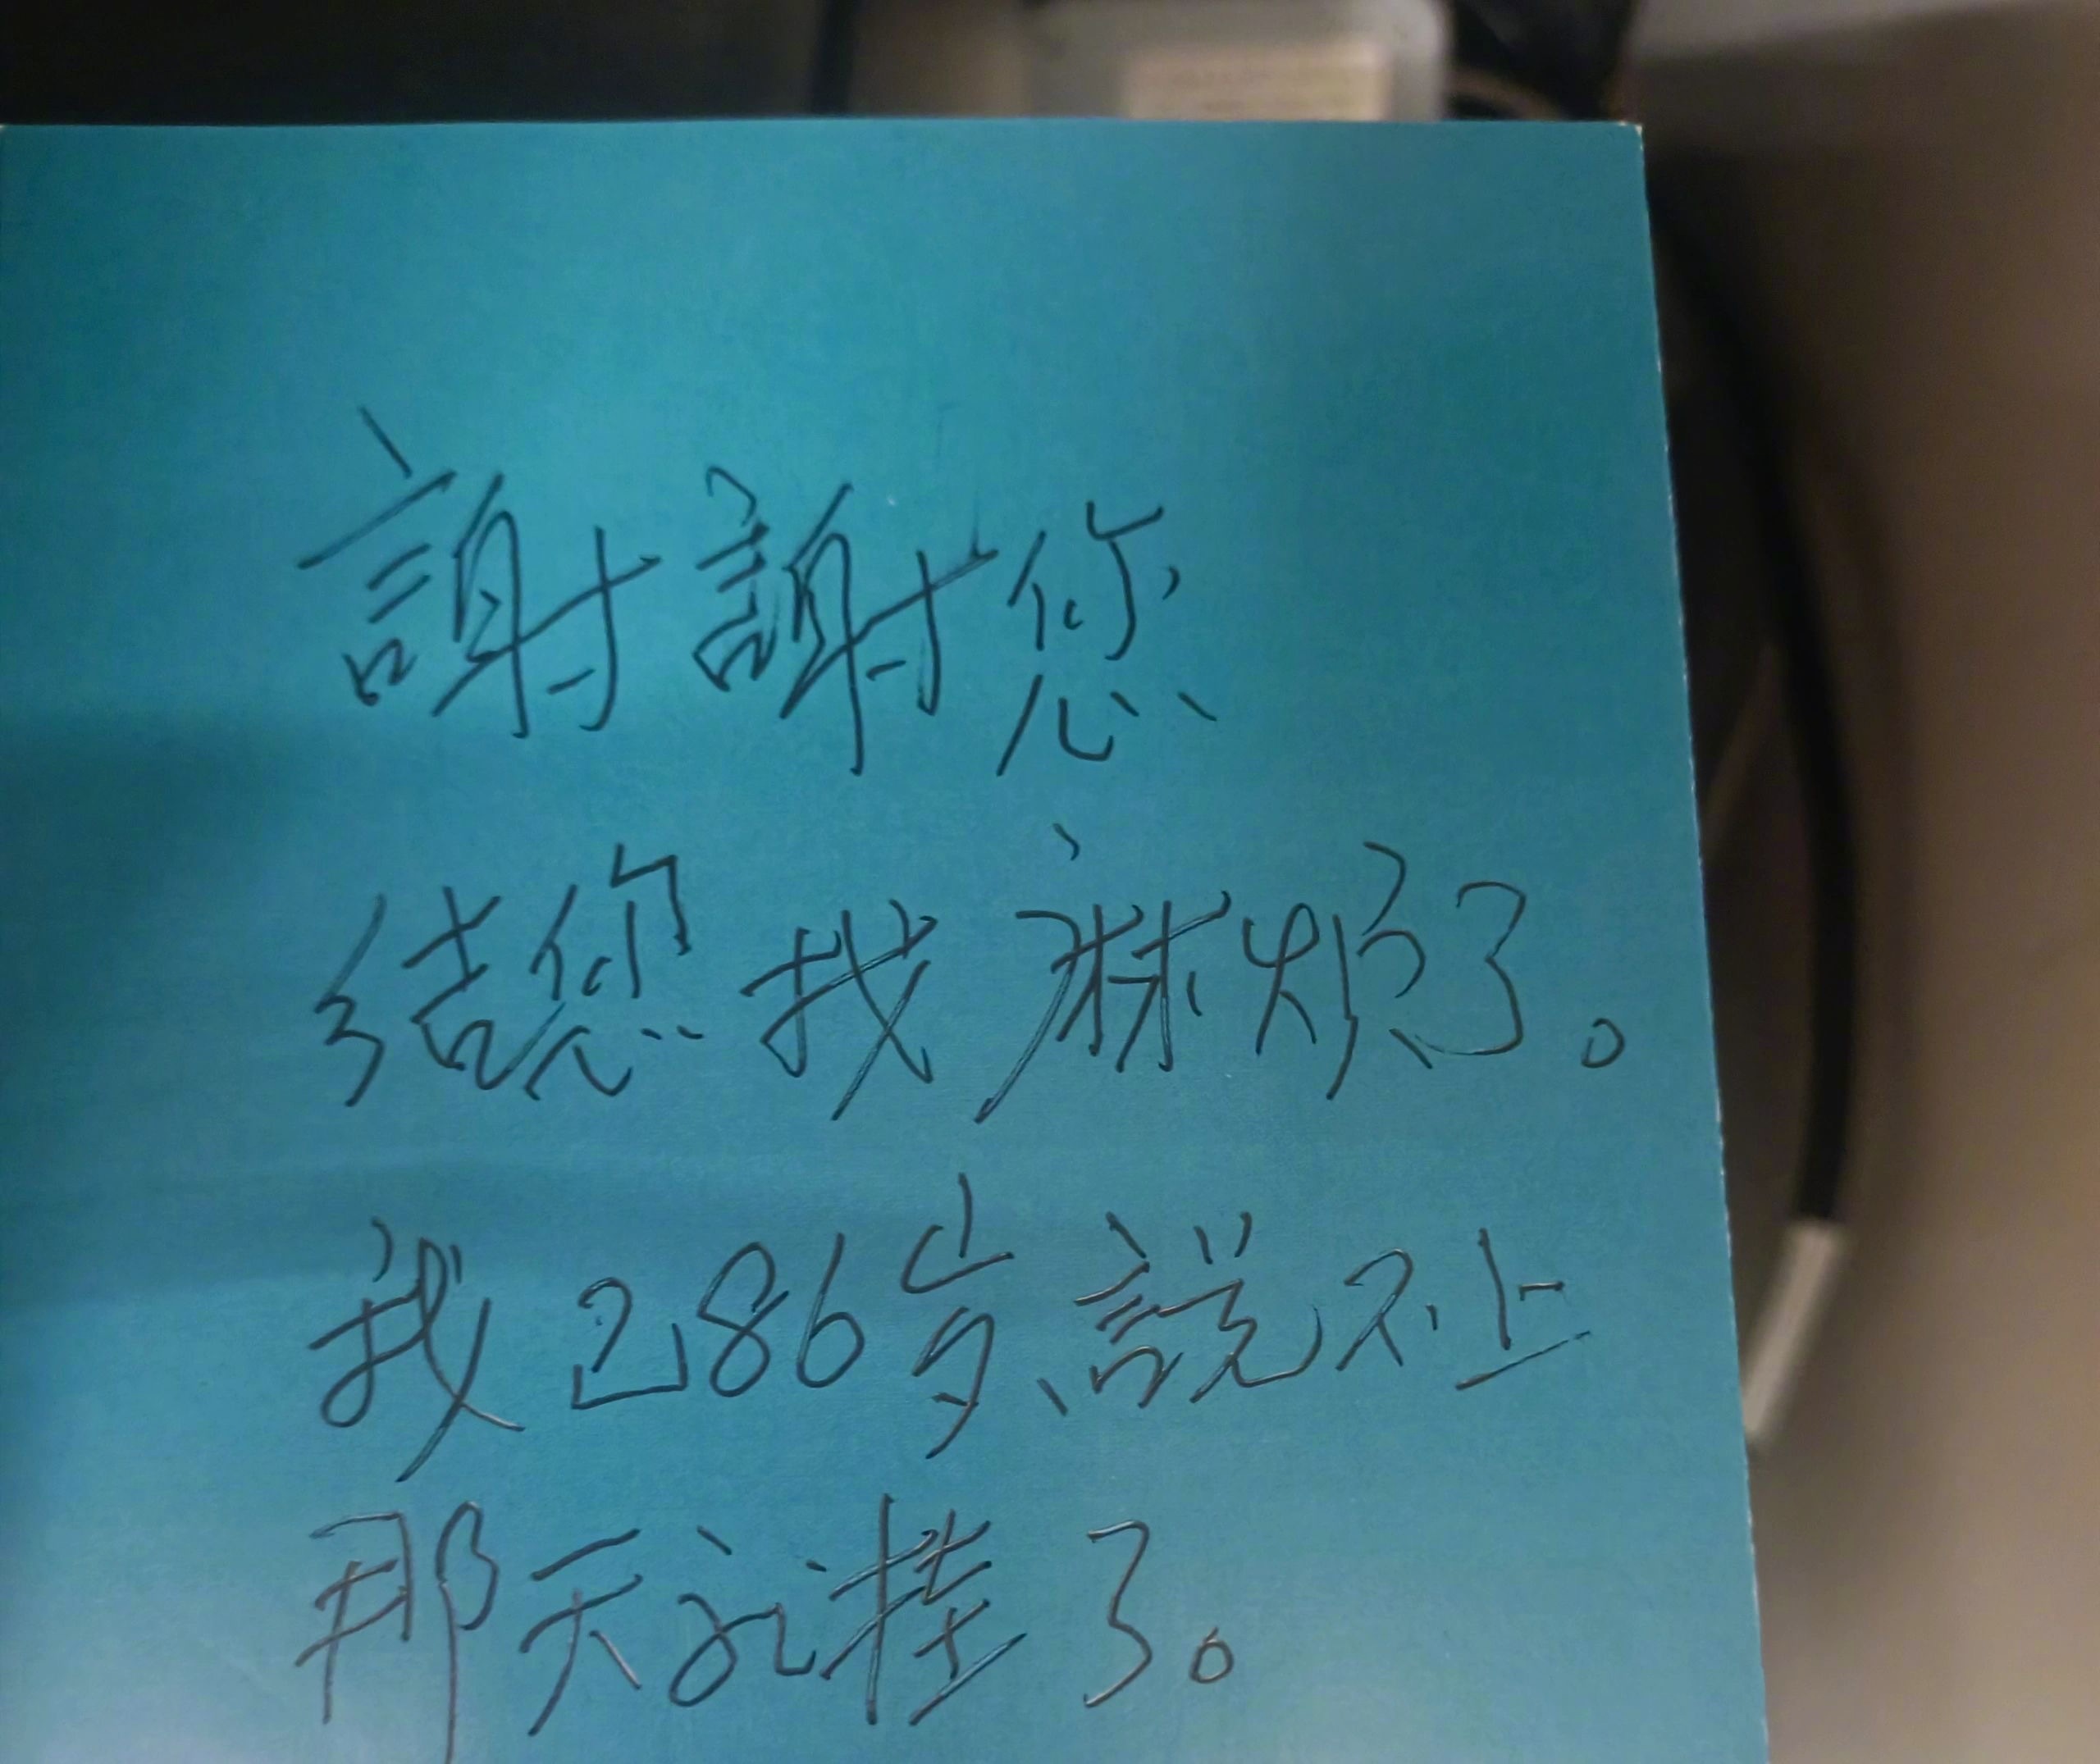 謝謝您
给您找麻烦了。
我已86岁、説不上
那天就挂了。